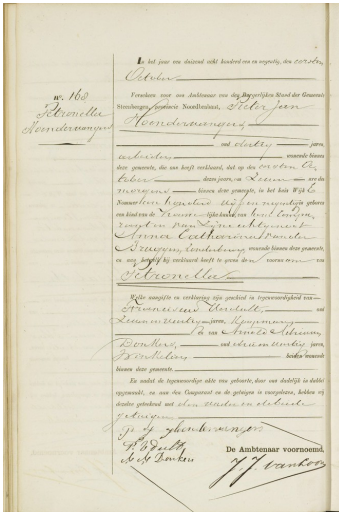 In het jaar van duizend acht honderd een en negentig, den eersten
October
n°. 168
Petronella
Hoendervangers
Verscheen voor ons Ambtenaar van den Burgerlijken Stand der Gemeente
Steenbergen, provincie Noordbrabant, Pieter Jan
Hoendervangers
oud dertig jaren,
arbeider wonende binnen
deze gemeente, die aan heeft verklaard, dat op den eersten Oc
tober dezes jaars, van ure des
morgens binnen deze gemeente, in het huis Wijk E
Nommer een honderd vijf en negentig is geboren
een kind van de Vrouwelijke kunne, van hem
en van zijne echtgenoot
Anna Catharina van der
wonende binnen deze gemeente,
en aan hetwelk hij verklaard heeft te geven den voornaam van
Petronella
Welke aangifte en verklaring zijn geschied in tegenwoordigheid van
Franciscus
oud
jaren,
en van Arnold Adriaan
Donkers, oud jaren,
winkelier beiden wonende
binnen deze gemeente.
En nadat de tegenwoordige akte van geboorte, daar van dadelijk in dubbel
opgemaakt, en aan den Comparant en de getuigen is voorgelezen, hebben wij
dezelve geteekend met den vader en de beide
getuigen
p j hoendervangers
A A Donkers
De Ambtenaar voornoemd,
J. J. van Loon